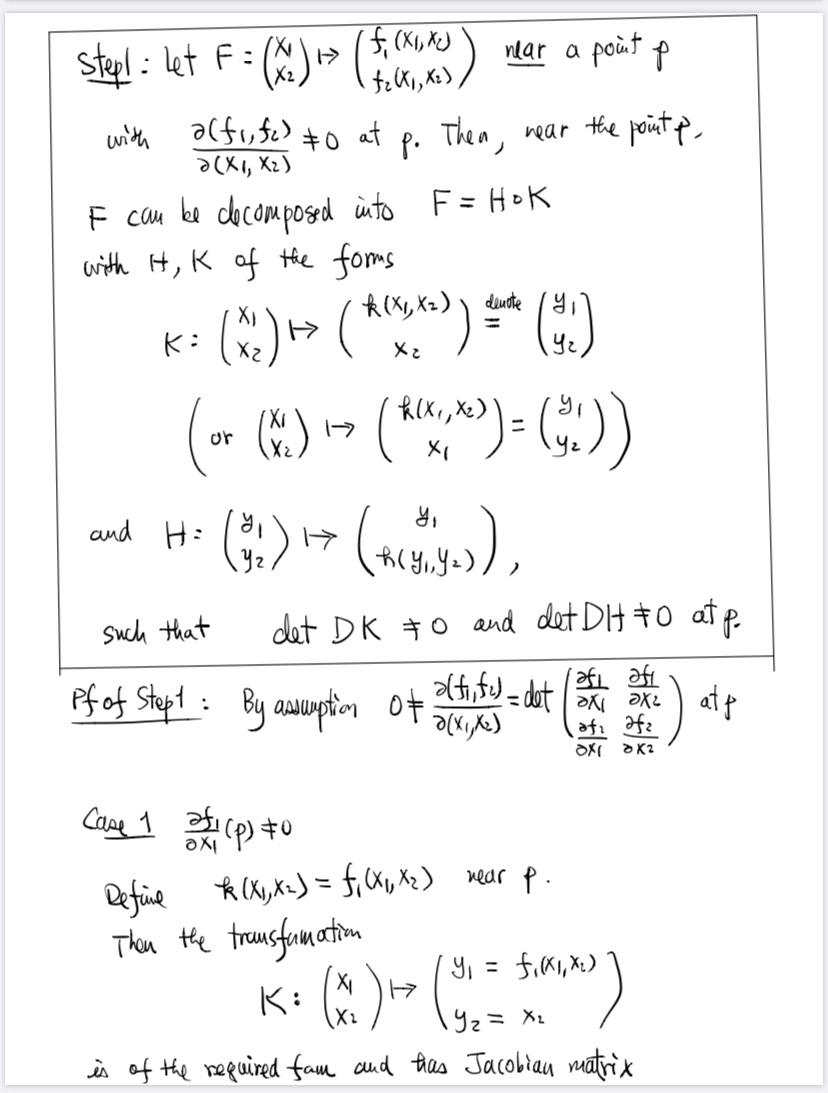 Step1: let F = (x₁ x₂) ↦ (f₁(x₁,x₂) f₂(x₁,x₂)) near a point p
with ∂(f₁,f₂)/∂(x₁,x₂) ≠ 0 at p. Then, near the point p,
F can be decomposed into F = H∘K
with H, K of the forms
K: (x₁ x₂) ↦ (k(x₁,x₂) x₂) denote = (y₁ y₂)
(or (x₁ x₂) ↦ (k(x₁,x₂) x₁) = (y₁ y₂))
and H: (y₁ y₂) ↦ (y₁ h(y₁,y₂)),
such that det DK ≠ 0 and det DH ≠ 0 at p.
Pf of Step1: By assumption 0 ≠ ∂(f₁,f₂)/∂(x₁,x₂) = det (∂f₁/∂x₁ ∂f₁/∂x₂ ∂f₂/∂x₁ ∂f₂/∂x₂) at p
Case 1 ∂f₁/∂x₁(p) ≠ 0
Define k(x₁,x₂) = f₁(x₁,x₂) near p.
Then the transformation
K: (x₁ x₂) ↦ (y₁ = f₁(x₁,x₂) y₂ = x₂)
is of the required form and has Jacobian matrix